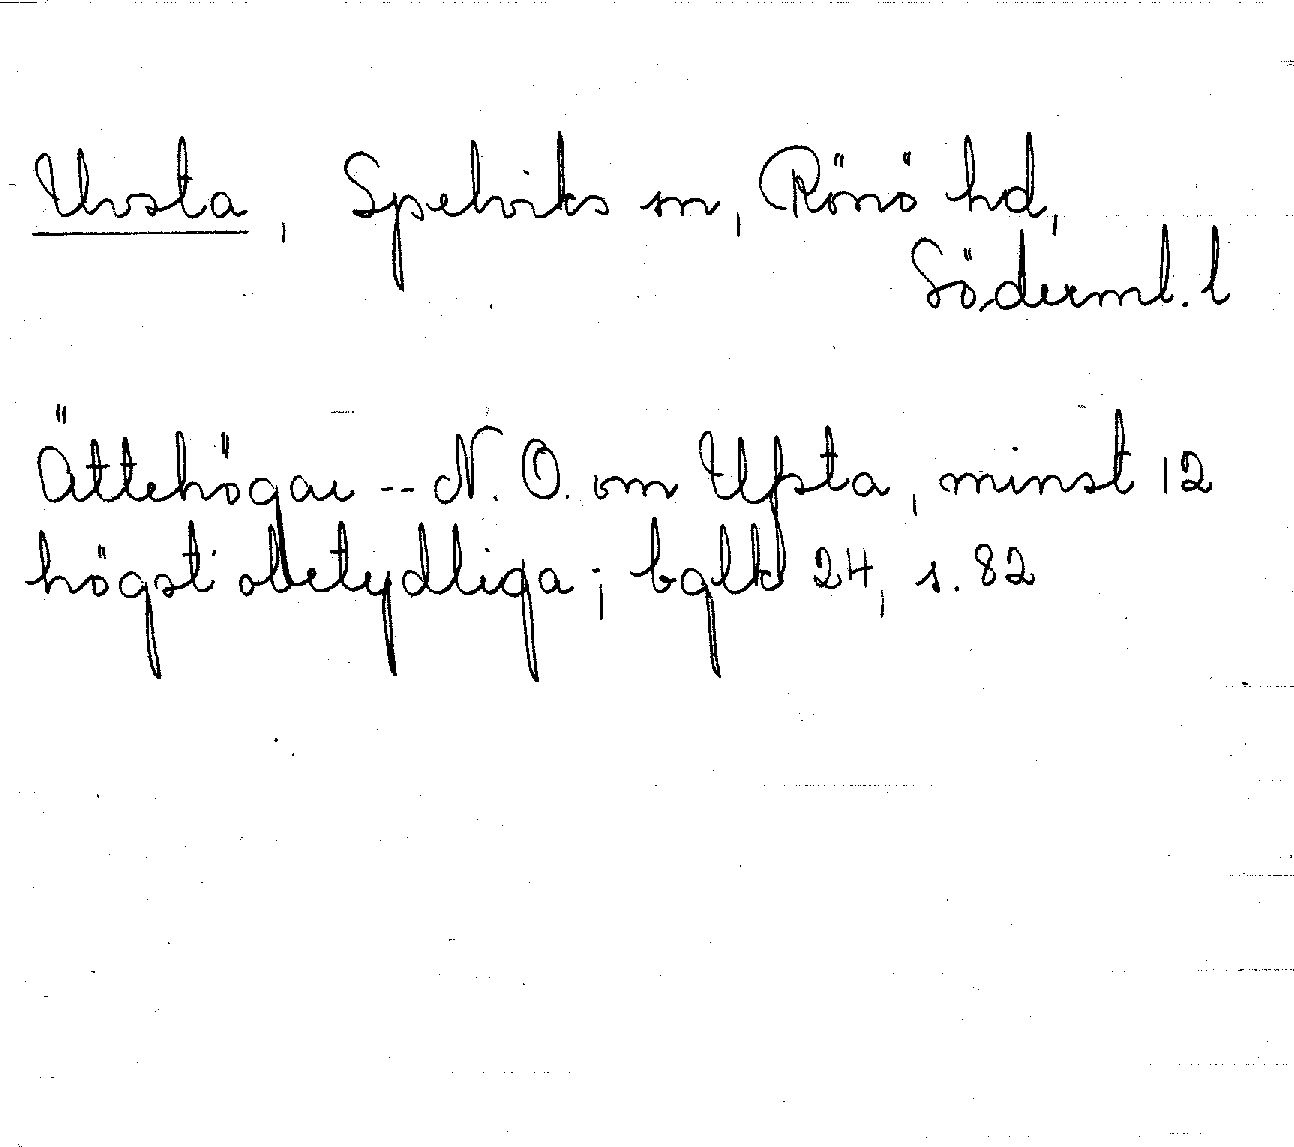 Uvsta, Spelviks sn, Rönö hd,
Söderml. l
Ättehögar -- N. O. om Ufsta, minst 12
högst obetydliga; bglbl 24, s. 82